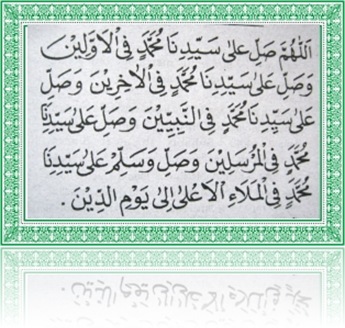 اَللّٰهُمَّ صَلِّ عَلٰى سَيِّدِنَا مُحَمَّدٍ فِى الْاَوَّلِيْنَ
وَصَلِّ عَلٰى سَيِّدِنَا مُحَمَّدٍ فِى الْاٰخِرِيْنَ وَصَلِّ
عَلٰى سَيِّدِنَا مُحَمَّدٍ فِى النَّبِيِّيْنَ وَصَلِّ عَلٰى سَيِّدِنَا
مُحَمَّدٍ فِى الْمُرْسَلِيْنَ وَصَلِّ وَسَلِّمْ عَلٰى سَيِّدِنَا
مُحَمَّدٍ فِى الْمَلَاءِ الْاَعْلٰى اِلٰى يَوْمِ الدِّيْنَ .